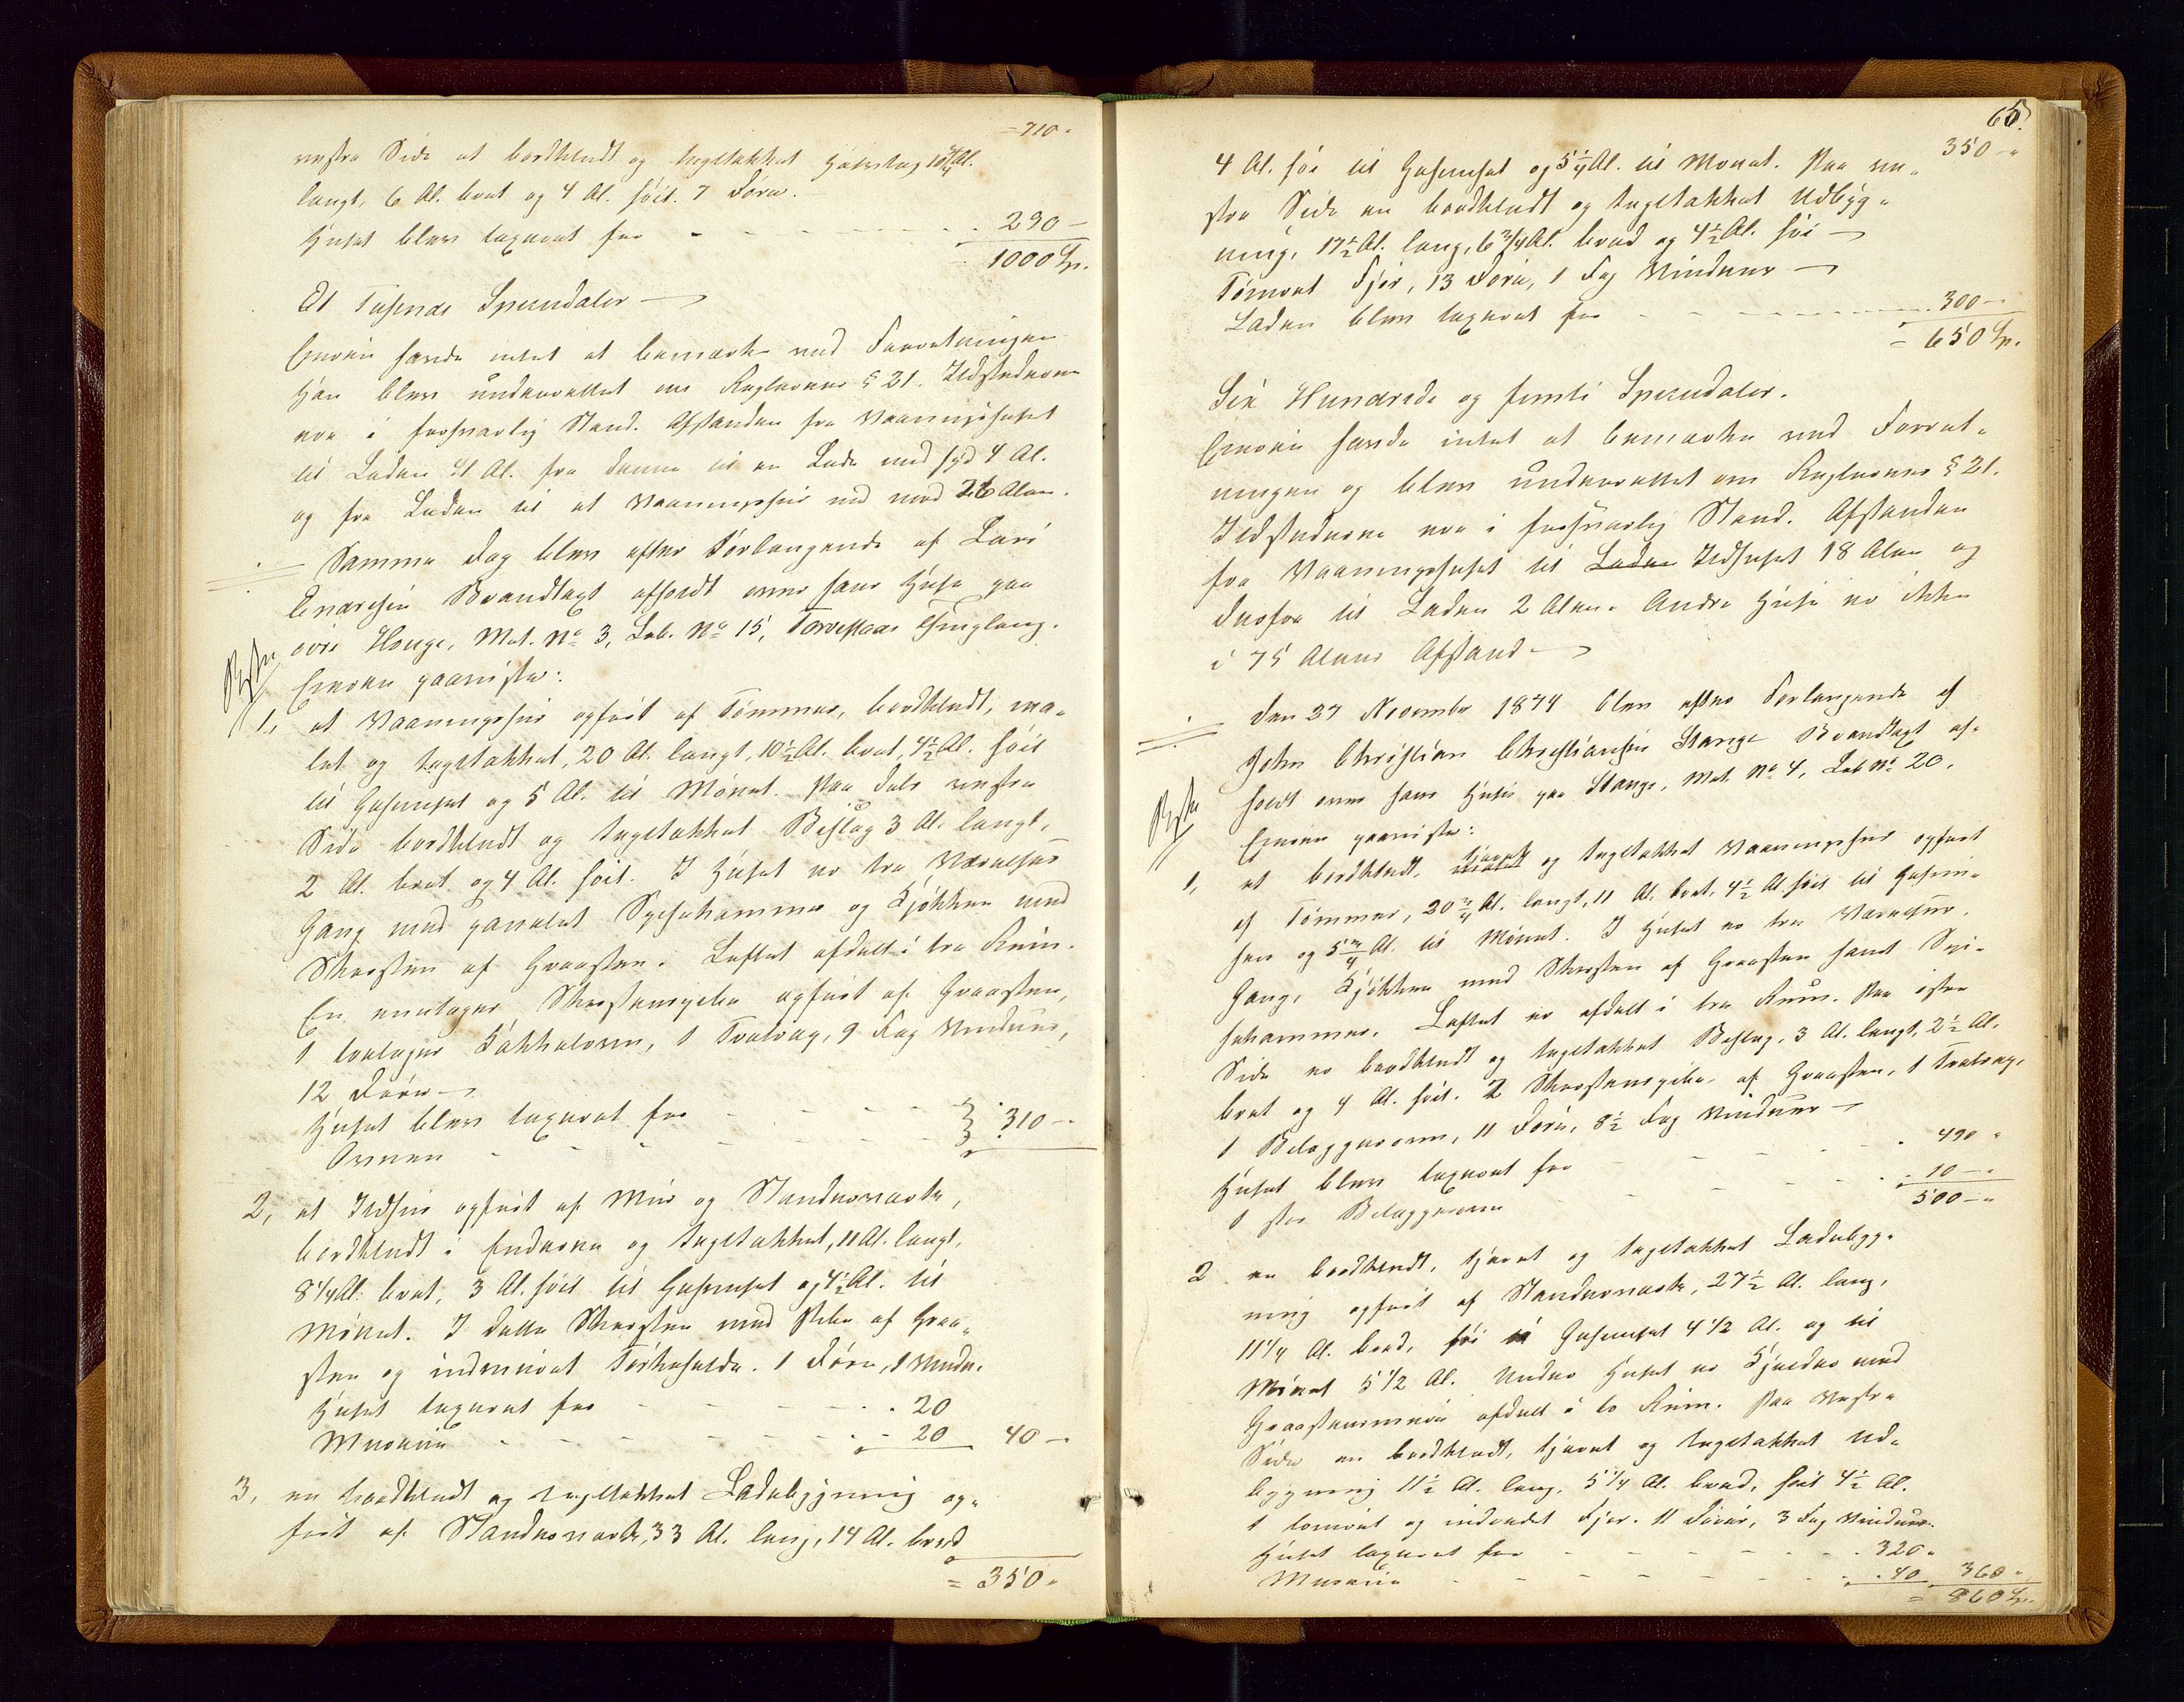 = 710 "
vestre Side et bordklædt og tegltækket Halvtag 10¾ Al.
langt, 6 Al. bret og 4 Al. høit. 7 Døre.
Huset blev taxeret for - - - - 290 –
1000 Sp.
Et Tusende Speciedaler —
Eieren havde intet at bemærke med Forretningen
Han blev underrettet om Reglernes § 21. Ildstederne
ere i forsvarlig Stand. Afstanden fra Vaaningshuset
til Laden 41 Al. fra denne til en Lade mod syd 4 Al.
og fra Laden til et Vaaningshus mod 26 Alen.
Samme Dag blev efter Forlangende af Lars
Enersen Brandtaxt afholdt over hans Huse paa
øvre Houge, Mat. No 3, Løb. No 15, Torvestad Thinglaug.
Eieren paaviste:
1, et Vaaningshus opført af Tømmer, bordklædt, ma-
let og tegltækket, 20 Al. langt, 10½ Al. bret, 4½ Al. høit
til Gesimset og 5 Al. til Mønet. Paa dets vestre
Side bordklædt og tegltækket Bislag 3 Al. langt,
2 Al. bret og 4 Al. høit. I Huset er tre Værelser
Gang med panelet Spisekammer og Kjøkken med
Skorsten af Graasten. Loftet afdelt i tre Rum.
En Skorstenspibe opført af Graasten,
1 toetages Kakkelovn, 1 Svalvæg, 9 Fag Vinduer,
12 Døre —
Huset blev taxeret for - - - -
Ovnen - - - - 310 –
2, et Ildhus opført af Muur og Stenderværk,
bordklædt i Enderne og tegltækket, 11 Al. langt,
8¼ Al. bret, 3 Al. høit til Gesimset og 4½ Al. til
Mønet. I dette Skorsten med Pibe af Graa-
sten og indmuret Tørkehelde. 1 Dør, 1 Vindu.
Huset taxeret for - - - - 20
Murene - - - - 20 40 –
3, en bordklædt og tegltækket Ladebygning op-
ført af Stenderværk, 33 Al. lang, 14 Al. bred
= 350 "
65.
350 – "
4 Al. høi til Gesimset og 5¼ Al. til Mønet. Paa ve-
stre Side en bordklædt og tegltækket Udbyg-
ning, 17½ Al. lang, 6¾ Al. bred og 4½ Al. høi —
Tømret Fjøs, 13 Døre, 1 Fag Vinduer —
Laden blev taxeret for - - - - 300 –
= 650 Sp.
Sex Hundrede og femti Speciedaler.
Eieren havde intet at bemærke med Forret-
ningen og blev underrettet om Reglernes § 21.
Ildstederne ere i forsvarlig Stand. Afstanden
fra Vaaningshuset til Laden Ildhuset 18 Alen og
derfra til Laden 2 Alen. Andre Huse er ikke
i 75 Alens Afstand —
Den 27 November 1874 blev efter Forlangende af
John Christian Christiansen Stange Brandtaxt af-
holdt over hans Huse paa Stange, Mat. No 4, Løb No 20.
Eieren paaviste:
1, et bordklædt, malet tjæret og tegltækket Vaaningshus opført
af Tømmer, 20¾ Al. langt, 11 Al. bret, 4½ Al. høit til Gesim-
sen og 5¾ Al. til Mønet. I Huset er tre Værelser,
Gang, Kjøkken med Skorsten af Graasten samt Spi-
sekammer. Loftet er afdelt i tre Rum. Paa østre
Side er bordklædt og tegltækket Bislag, 3 Al. langt, 2½ Al.
bret og 4 Al. høit. 2 Skorstenspibe af Graasten, 1 Svalvæg,
1 Bilæggerovn, 11 Døre, 8½ Fag Vinduer —
Huset blev taxeret for - - - - 490 "
1 stor Bilæggerovn - - - - 10 – "
500 – "
2 en bordklædt, tjæret og tegltækket Ladebyg-
ning opført af Stenderværk, 27½ Al. lang,
11¼ Al. bred, høi til Gesimset 4½ Al. og til
Mønet 5½ Al. Under Huset er Kjelder med
Graastensmure afdelt i to Rum. Paa Vestre
Side en bordklædt, tjæret og tegltækket Ud-
bygning 11½ Al. lang, 5¼ Al. bred, høit 4½ Al.
1 tømret og indredet Fjøs. 11 Døre, 3 Fag Vinduer
Huset taxeret for - - - - 320 "
Murene - - - - 40 360 "
= 860 Sp.